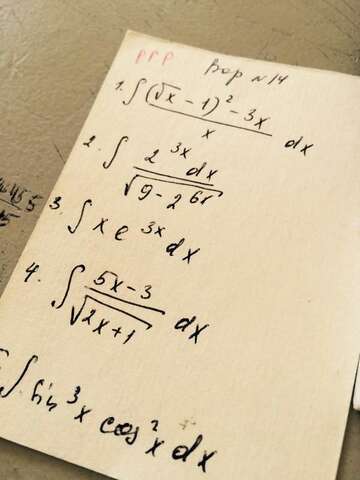 РГР Вар N14
1. ∫ ((√x - 1)² - 3x)/x dx
2. ∫ 2^(3x) dx/√(9 - 2^(6x))
3. ∫ x e^(3x) dx
4. ∫ (5x-3)/√(2x+1) dx
∫ sin³x cos²x dx